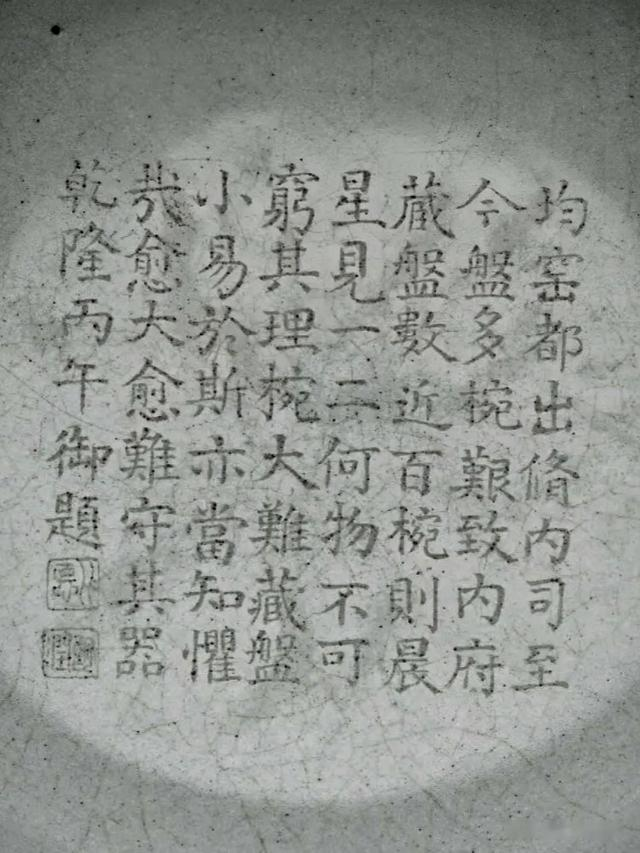 均窑都出脩内司至
今盤多椀艱致内府
蔵盤數近百椀則晨
星見一二何物不可
窮其理椀大難藏盤
小易於斯亦當知懼
㦲愈大愈難守其器
乾隆丙午御題